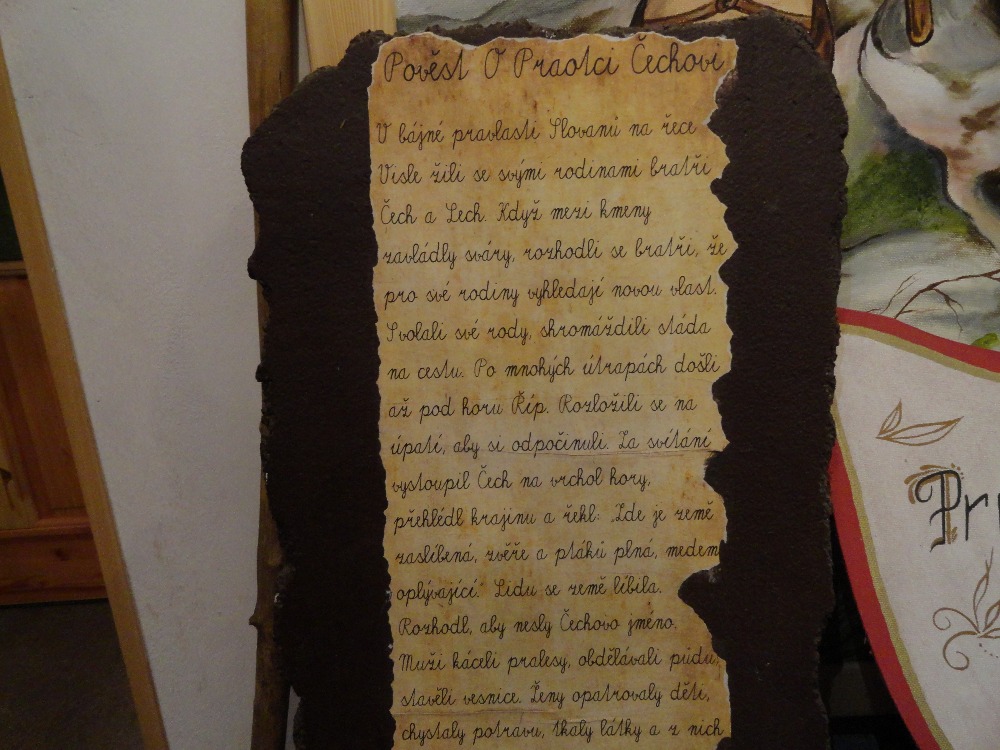 Pověst O Praotci Čechovi
V bájné pravlasti Slovanů na řece
Visle žili se svými rodinami bratři
Čech a Lech. Když mezi kmeny
zavládly sváry, rozhodli se bratři, že
pro své rodiny vyhledají novou vlast.
Svolali své rody, shromáždili stáda
na cestu. Po mnohých útrapách došli
až pod horu Říp. Rozložili se na
úpatí, aby si odpočinuli. Za svítání
vystoupil Čech na vrchol hory,
přehlédl krajinu a řekl: „Zde je země
zaslíbená, zvěře a ptáků plná, medem
oplývající.“ Lidu se země líbila.
Rozhodl, aby nesly Čechovo jméno.
Muži káceli pralesy, obdělávali půdu,
stavěli vesnice. Ženy opatrovaly děti,
chystaly potravu, tkaly látky a z nich